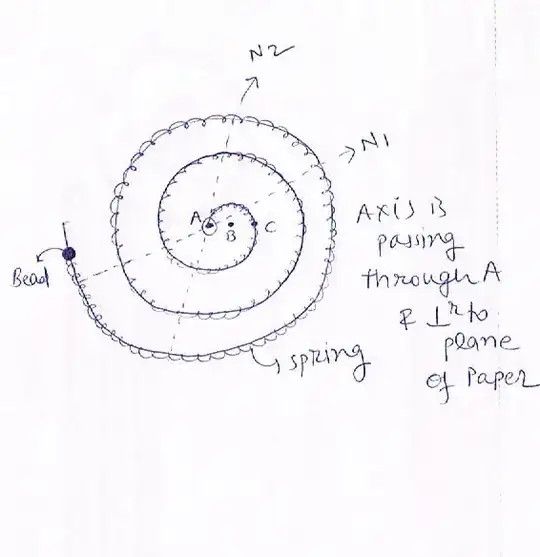 N2
N1
A
B
C
Bead
spring
Axis is
passing
through A
& ⊥r to
plane
of Paper